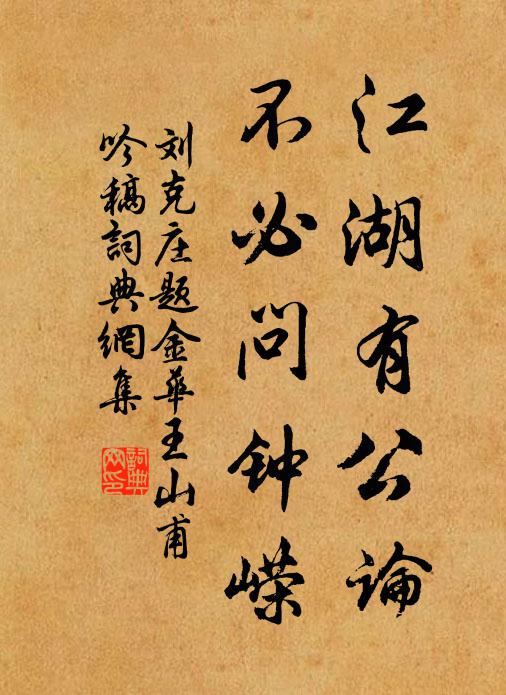 江湖有公論
不必问钟嵘
刘克庄题金华王山甫
吟稿詞典網集
詞典網印